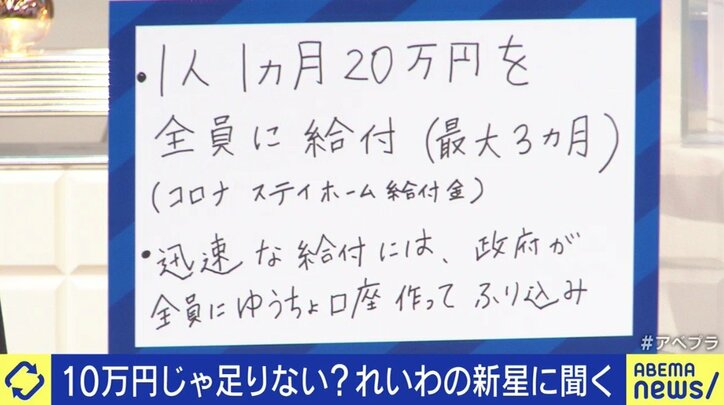 ・1人 1ヵ月 20万円を
全員に 給付 (最大3ヵ月)
(コロナ ステイホーム 給付金)
・迅速な給付には、政府が
全員にゆうちょ口座 作って ふり込み
#アベプラ
10万円じゃ足りない?れいわの新星に聞く
ABEMA
NEWS/